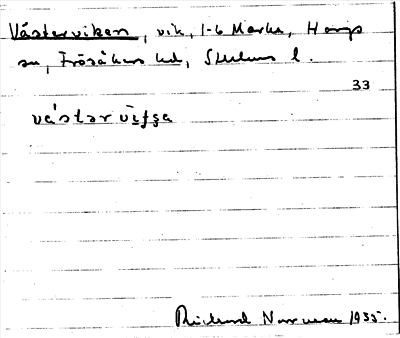 Västerviken, vik, 1-6 Marka, Hargs
sn, Frösåkers hd, Sthlms l.
33
vǻstər vìꞥa
Rickard Norrman 1935.